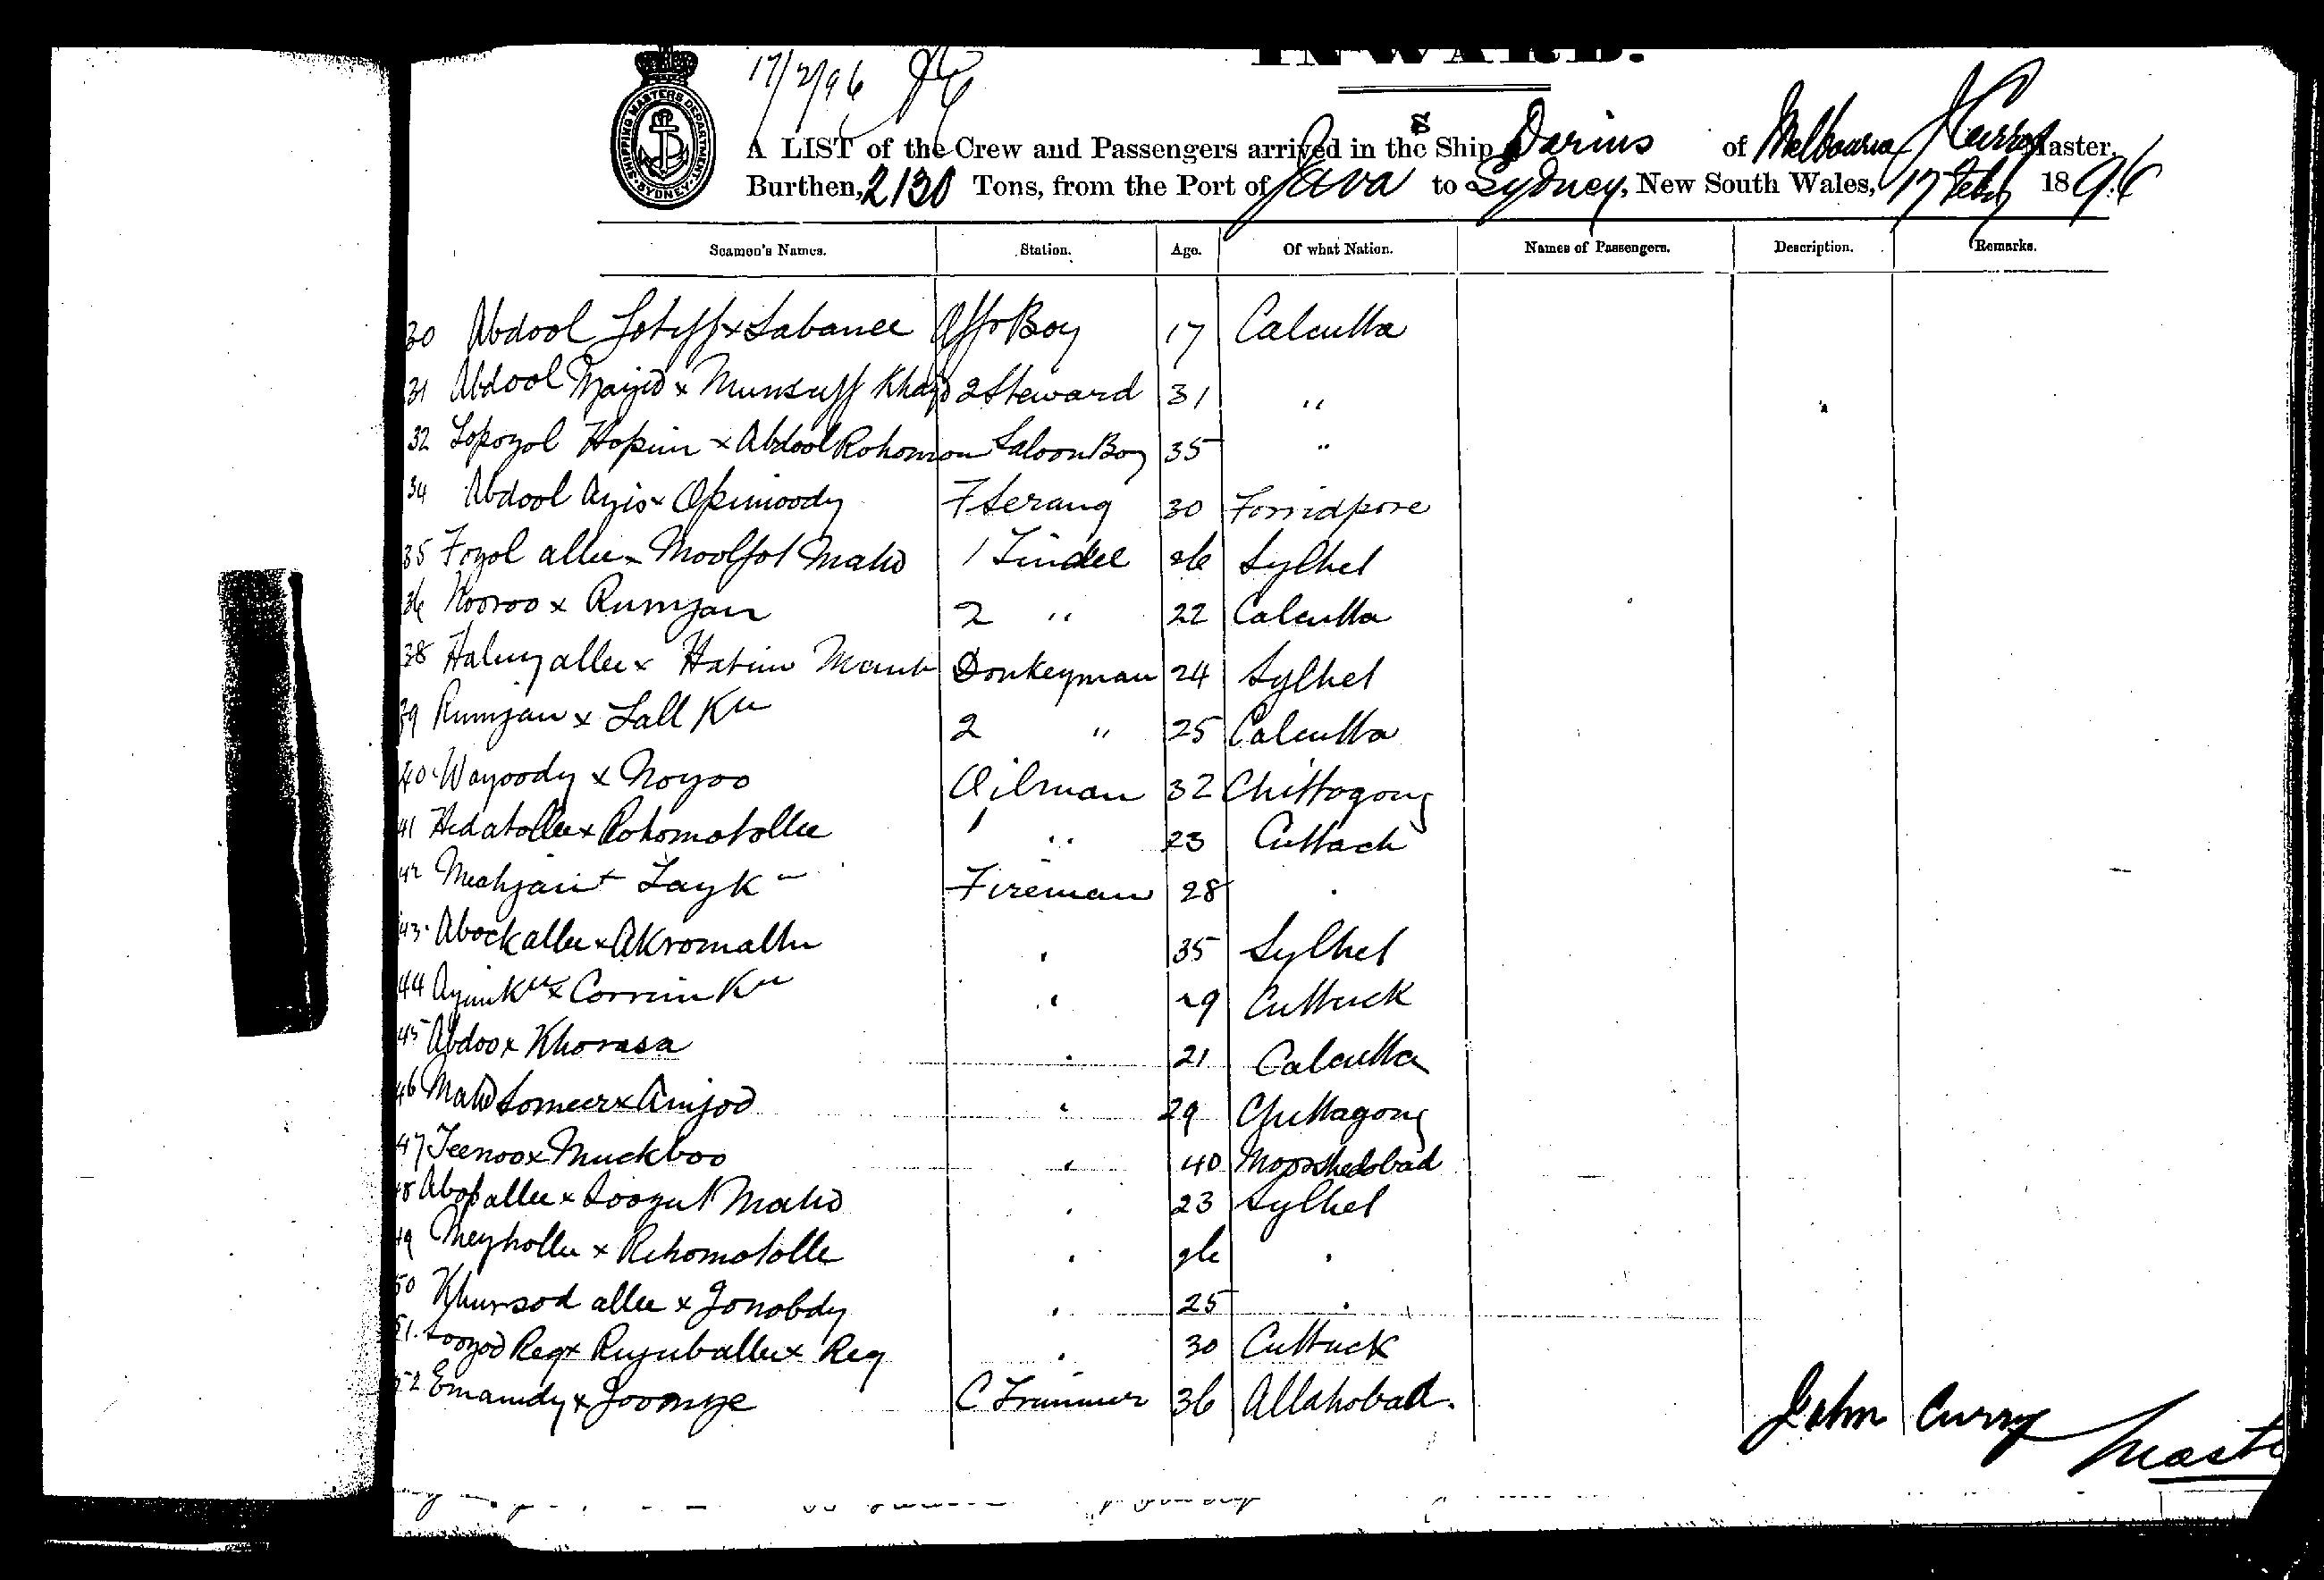 INWARD.
17/2/96
SHIPPING MASTERS DEPARTMENT SYDNEY
A LIST of the Crew and Passengers arrived in the S Ship Darius of Melbourne J Curry Master,
Burthen, 2130 Tons, from the Port of Java to Sydney, New South Wales, 17 Feby 1896
Seamen's Names. Station. Age. Of what Nation. Names of Passengers. Description. Remarks.
30 Abdool Loteff x Sabanee Boy 17 Calcutta
31 Abdool Majid x Munsuff Khan 2 Steward 31 "
32 Abdool Rohomon Saloon Boy 35 "
34 Abdool Azis x Opimoody F Serang 30 Forridpore
35 Fozol allee x Moolfot Mahd 1 Tindel 26 Sylhet
36 Nooroo x Rumjan 2 " 22 Calcutta
38 allee x Hatim Donkeyman 24 Sylhet
39 Rumjan x Lall Kn 2 " 25 Calcutta
40 Wazoody x Noyoo Oilman 32 Chittagong
41 Hedatollee x Rohomotollee " 23 Cuttack
42 Meahjan x Layk Fireman 28 "
43 Abock allee x Akromallee " 35 Sylhet
44 Azim Kn x Corrim Kn " 29 Cuttuck
45 Abdoo x Khorasa " 21 Calcutta
46 Mahd Someer x Amjod " 29 Chittagong
47 Teenoo x Muckboo " 40 Moorshedobad
48 allee x Soozut Mahd " 23 Sylhet
49 Meyhollee x Rehomotolle " 26 "
50 Khursod allee x Jonobdy " 25 "
51 Soozod Reg x Rujuballee x Reg " 30 Cuttuck
52 Emamdy x Joomye C Trimmer 36 Allahobad.
John Curry
Master